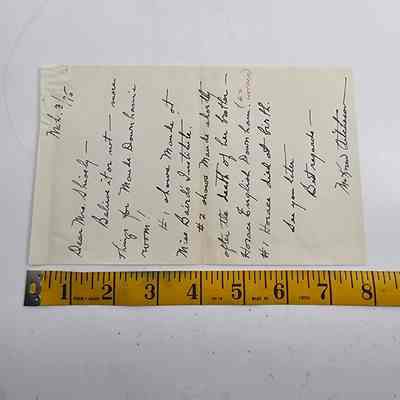 Feb. 3/75
Dear Mrs. Shively —
Believe it or not — more
things for Maude Downham's
room!
#1 shows Maude at
Miss Baird's Institute.
#2 shows Maude shortly
after the death of her brother —
Horace English Downham (as
#1 Horace died at birth.
See you later
Best regards —
1 2 3 4 5 6 7 8